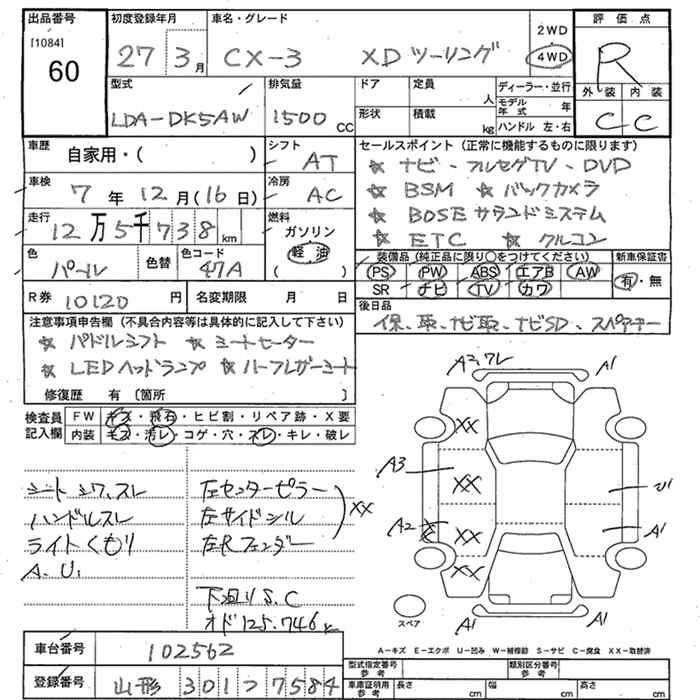 出品番号 初度登録年月 車名・グレード 評価点
[1084] 60 27 3月 CX-3 XD ツーリング 2WD 4WD R
型式 排気量 ドア 定員 ディーラー・並行 外装 内装
LDA-DK5AW 1500 CC 人 モデル年式 年 C C
形状 積載 kg ハンドル 左・右
車歴 自家用・( ) シフト AT セールスポイント (正常に機能するものに限ります)
☆ ナビ・フルセグTV・DVD
車検 7年 12月(16日) 冷房 AC ☆ BSM ☆ バックカメラ
走行 12万5千738km 燃料 ガソリン ☆ BOSEサラウンドシステム
軽油 ☆ ETC ☆ クルコン
色 パール 色替 色コード 47A ( ) 装備品 (純正品に限り○をつけてください) 新車保証書
PS PW ABS エアB AW 有・無
SR ナビ TV カワ
R券 10120円 名変期限 月 日 後日品
保、取、ナビ取、ナビSD、スペアキー
注意事項申告欄 (不具合内容等は具体的に記入して下さい)
☆ パドルシフト ☆ シートヒーター
☆ LEDヘッドランプ ☆ ハーフレザーシート
修復歴 有 〔箇所 〕
検査員 FW キズ・飛石・ヒビ割・リペア跡・X要
記入欄 内装 キズ・汚レ・コゲ・穴・スレ・キレ・破レ
A2,ワレ A1
XX
A3 XX
A2 XX A1
XX
A1 A1
シート シワ、スレ 左センターピラー
ハンドルスレ 左サイドシル XX
ライトくもり 左Rフェンダー
A.U.
下廻りS.C
オド125.746k
スペア
A-キズ E-エクボ U-凹み W-補修跡 S-サビ C-腐食 XX-取替済
車台番号 102562
登録番号 山形 301つ7584
型式指定番号 参考 類別区分番号 参考
車庫証明用 参考 長さ cm 幅 cm 高さ cm